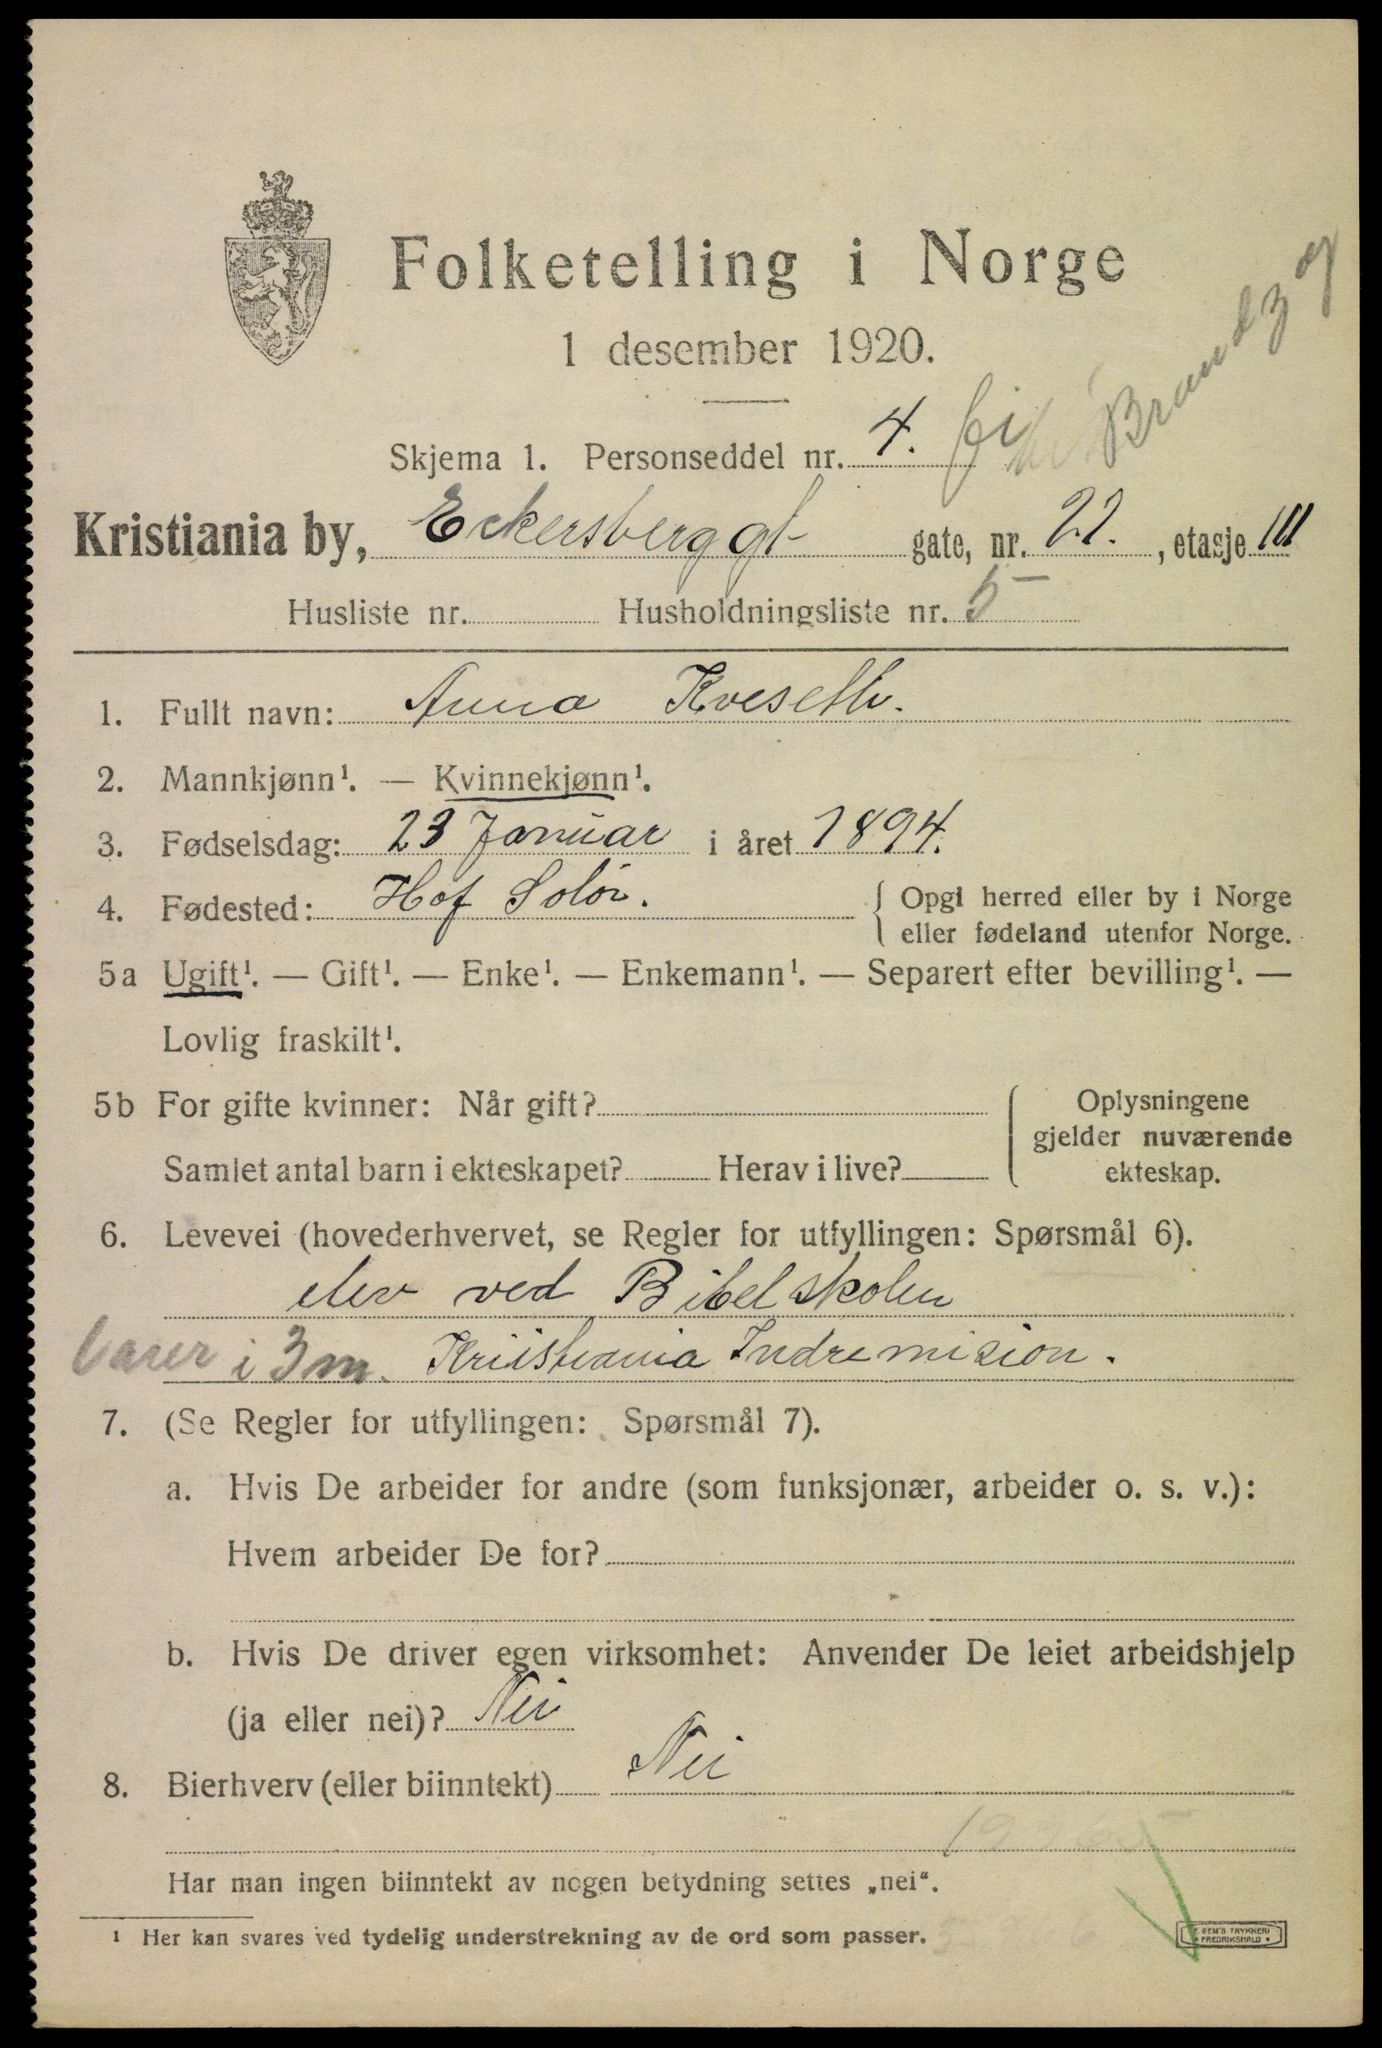 Folketelling i Norge
1 desember 1920.
Skjema 1. Personseddel nr. 4.
Brandzog
Kristiania by, Eckersberggt gate, nr. 22. , etasje III
Husliste nr. Husholdningsliste nr. 5
1. Fullt navn: Anna Kveseth.
2. Mannkjønn¹. — Kvinnekjønn¹.
3. Fødselsdag: 23 Januar i året 1894.
4. Fødested: Hof Solör. { Opgi herred eller by i Norge
eller fødeland utenfor Norge.
5a Ugift¹. — Gift¹. — Enke¹. — Enkemann¹. — Separert efter bevilling¹. —
Lovlig fraskilt¹.
5b For gifte kvinner: Når gift? Oplysningene
gjelder nuværende
Samlet antal barn i ekteskapet? Herav i live? ekteskap.
6. Levevei (hovederhvervet, se Regler for utfyllingen: Spørsmål 6).
elev ved Bibelskolen
i 3 m. Kriistiania Indremision.
7. (Se Regler for utfyllingen: Spørsmål 7).
a. Hvis De arbeider for andre (som funksjonær, arbeider o. s. v.):
Hvem arbeider De for?
b. Hvis De driver egen virksomhet: Anvender De leiet arbeidshjelp
(ja eller nei)? Nei
8. Bierhverv (eller biinntekt) Nei
Har man ingen biinntekt av nogen betydning settes „nei“.
¹ Her kan svares ved tydelig understrekning av de ord som passer.
SEM'S TRYKKERI
FREDRIKSHALD